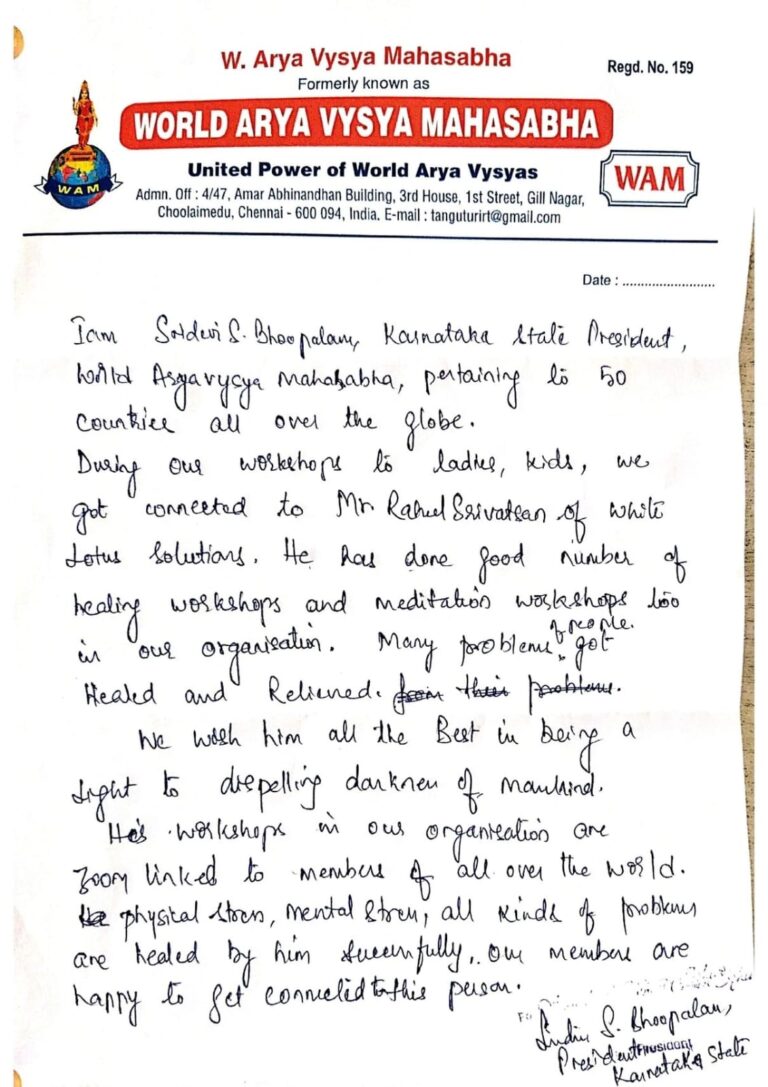 W. Arya Vysya Mahasabha
Regd. No. 159
Formerly known as
WORLD ARYA VYSYA MAHASABHA
United Power of World Arya Vysyas
WAM
WAM
Admn. Off : 4/47, Amar Abhinandhan Building, 3rd House, 1st Street, Gill Nagar,
Choolaimedu, Chennai - 600 094, India. E-mail : tanguturirt@gmail.com
Date : ..........................
I am Sridevi S. Bhoopalam, Karnataka State President,
World Aryavysya Mahasabha, pertaining to 50
countries all over the globe.
During our workshops to ladies, kids, we
got connected to Mr. Rahul Srivatsan of White
Lotus Solutions. He has done good number of
healing workshops and meditation workshops too
in our organisation. Many problems of people. got
Healed and Relieved. from their problems.
We wish him all the Best in being a
light to dispelling darkness of mankind.
His workshops in our organisation are
zoom linked to members of all over the world.
physical stress, mental stress, all kinds of problems
are healed by him successfully. our members are
happy to get connected to this person.
S. Bhoopalam,
President PRESIDENT
Karnataka State